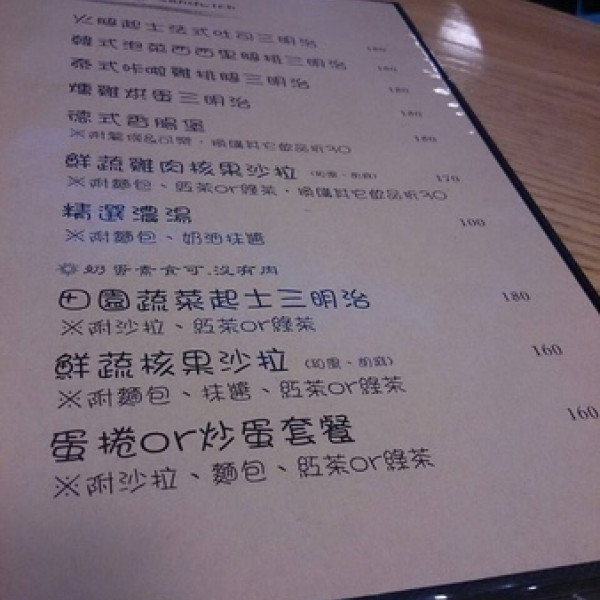 Sandwich
火腿起士法式吐司三明治 180
韓式泡菜西西里腿排三明治 180
泰式咔啦雞排腿三明治 180
燻雞烘蛋三明治 180
德式香腸堡 180
※附紅茶,換購其它飲品折30
鮮蔬雞肉核果沙拉 (和風、胡麻) 170
※附麵包、紅茶or綠茶,換購其它飲品折30
精選濃湯 100
※附麵包、奶油抹醬
奶蛋素食可.沒有肉
田園蔬菜起士三明治 180
※附沙拉、紅茶or綠茶
鮮蔬核果沙拉 (和風、胡麻) 160
※附麵包、抹醬、紅茶or綠茶
蛋捲or炒蛋套餐 160
※附沙拉、麵包、紅茶or綠茶